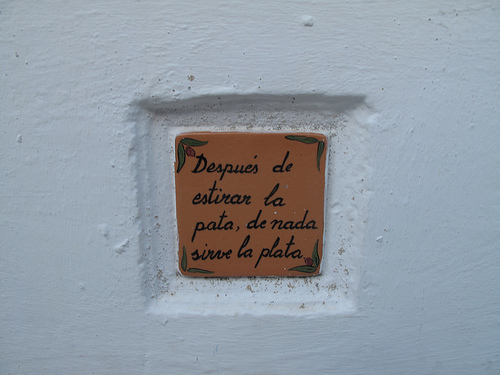 Después de
estirar la
pata, de nada
sirve la plata.